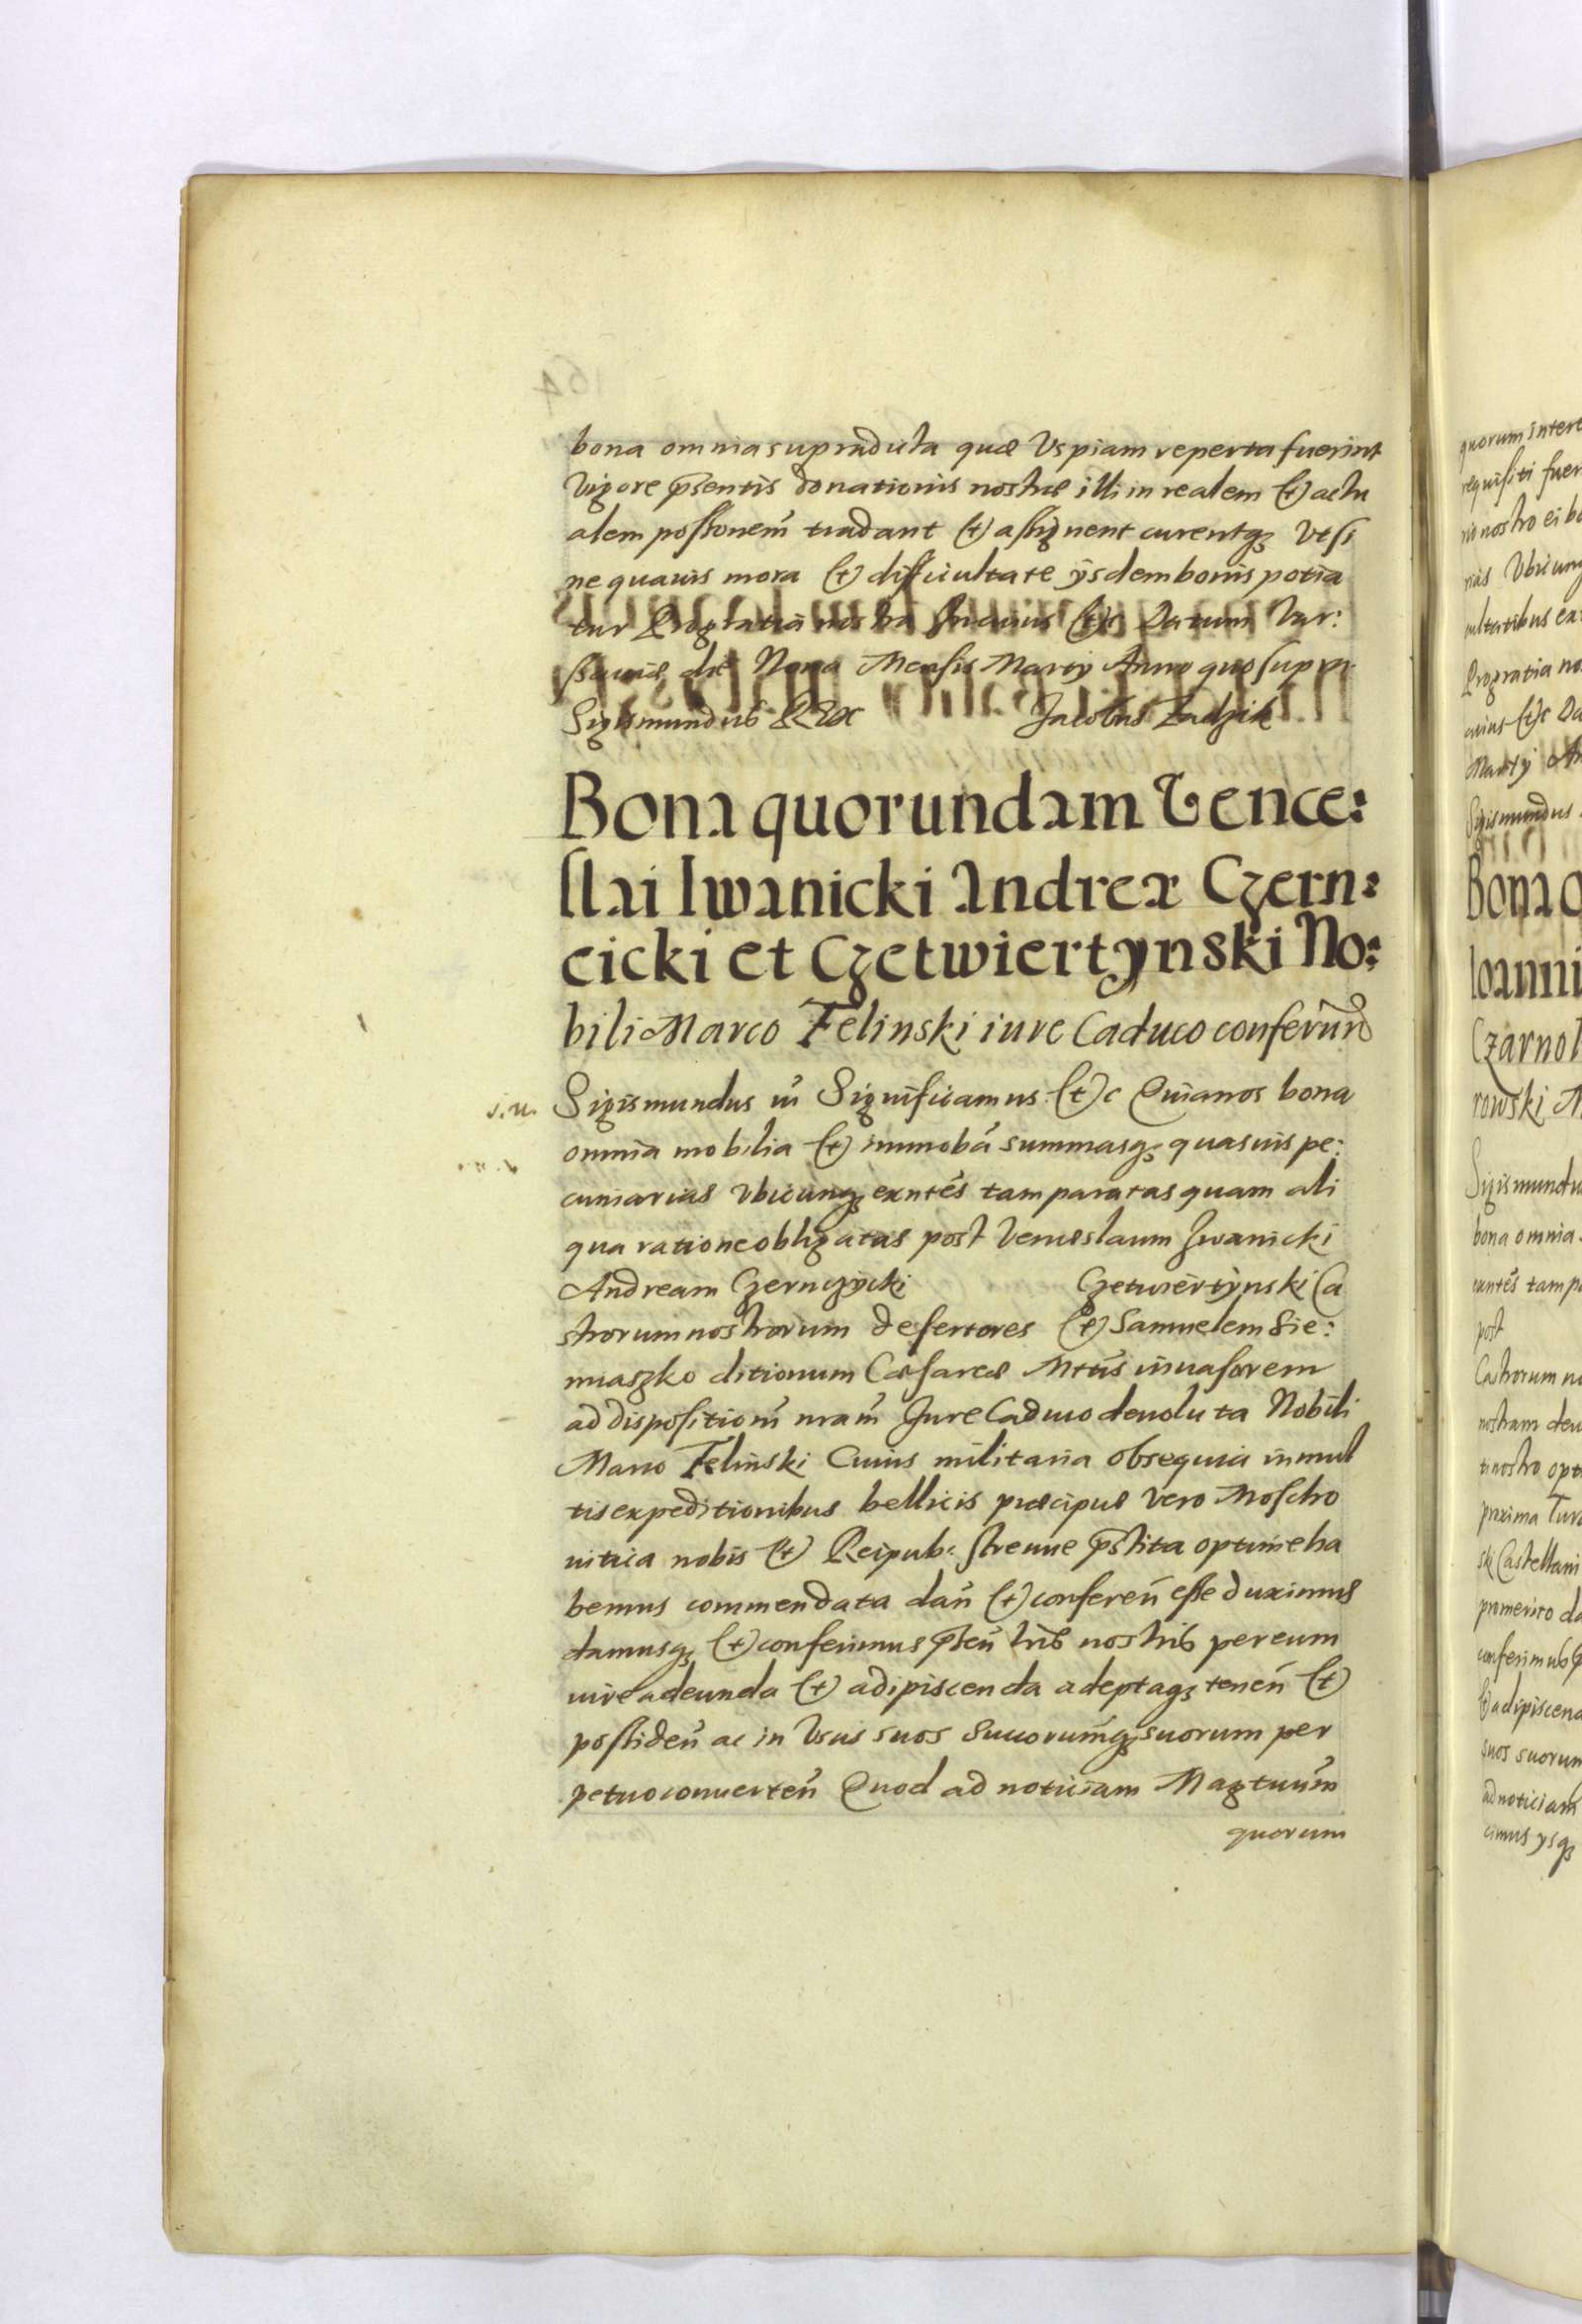 bona omnia supradicta quæ Vspiam reperta fuerint
Vigore p̄sentis donationis nostræ illi in realem (et) actu
alem possonem̄ tradant (et) assignent curentq3 Vt si
ne quauis mora (et) difficultate ijsdem bonis potia
tur Pro gratia nostra In cuius (et)c Datum Var:
sauiæ die Nona Mensis Martij Anno quo supra
Sigismundus REX Jacobus Zadzik
Bona quorundam Vence:
slai Iwanicki Andreæ Czern:
cicki et Czetwiertynski No:
bili Marco Felinski iure Caduco conferūn
Sigismundus iii Significamus (et)c Quia nos bona
omnia mobilia (et) immobā summasq3 quasuis pe:
cuniarias Vbicunq3 exntēs tam paratas quam ali
qua ratione obligatas post Venceslaum Iwanicki
Andream Czernczycki Czetwiertynski Ca
strorum nostrorum desertores (et) Samuelem Sie:
miaszko ditionum Cæsareæ Mttīs inuasorem
ad dispositionē nram̄ Jure Caduco deuoluta Nobili
Marco Felinski Cuius militaria obsequia in mul
tis expeditionibus bellicis præcipue vero Moscho
uitica nobis (et) Reipub: strenue p̄stita optime ha
bemus commendata dan̄ (et) conferen̄ esse duximus
damusq3 (et) conferimus p̄sen̄ lrīs nostris per eum
iure adeunda (et) adipiscenda adeptaq3 tenen̄ (et)
possiden̄ ac in Vsus suos Succorum̄q3 suorum per
petuo conuerten̄ Quod ad noticiam Magtuūm
quorum